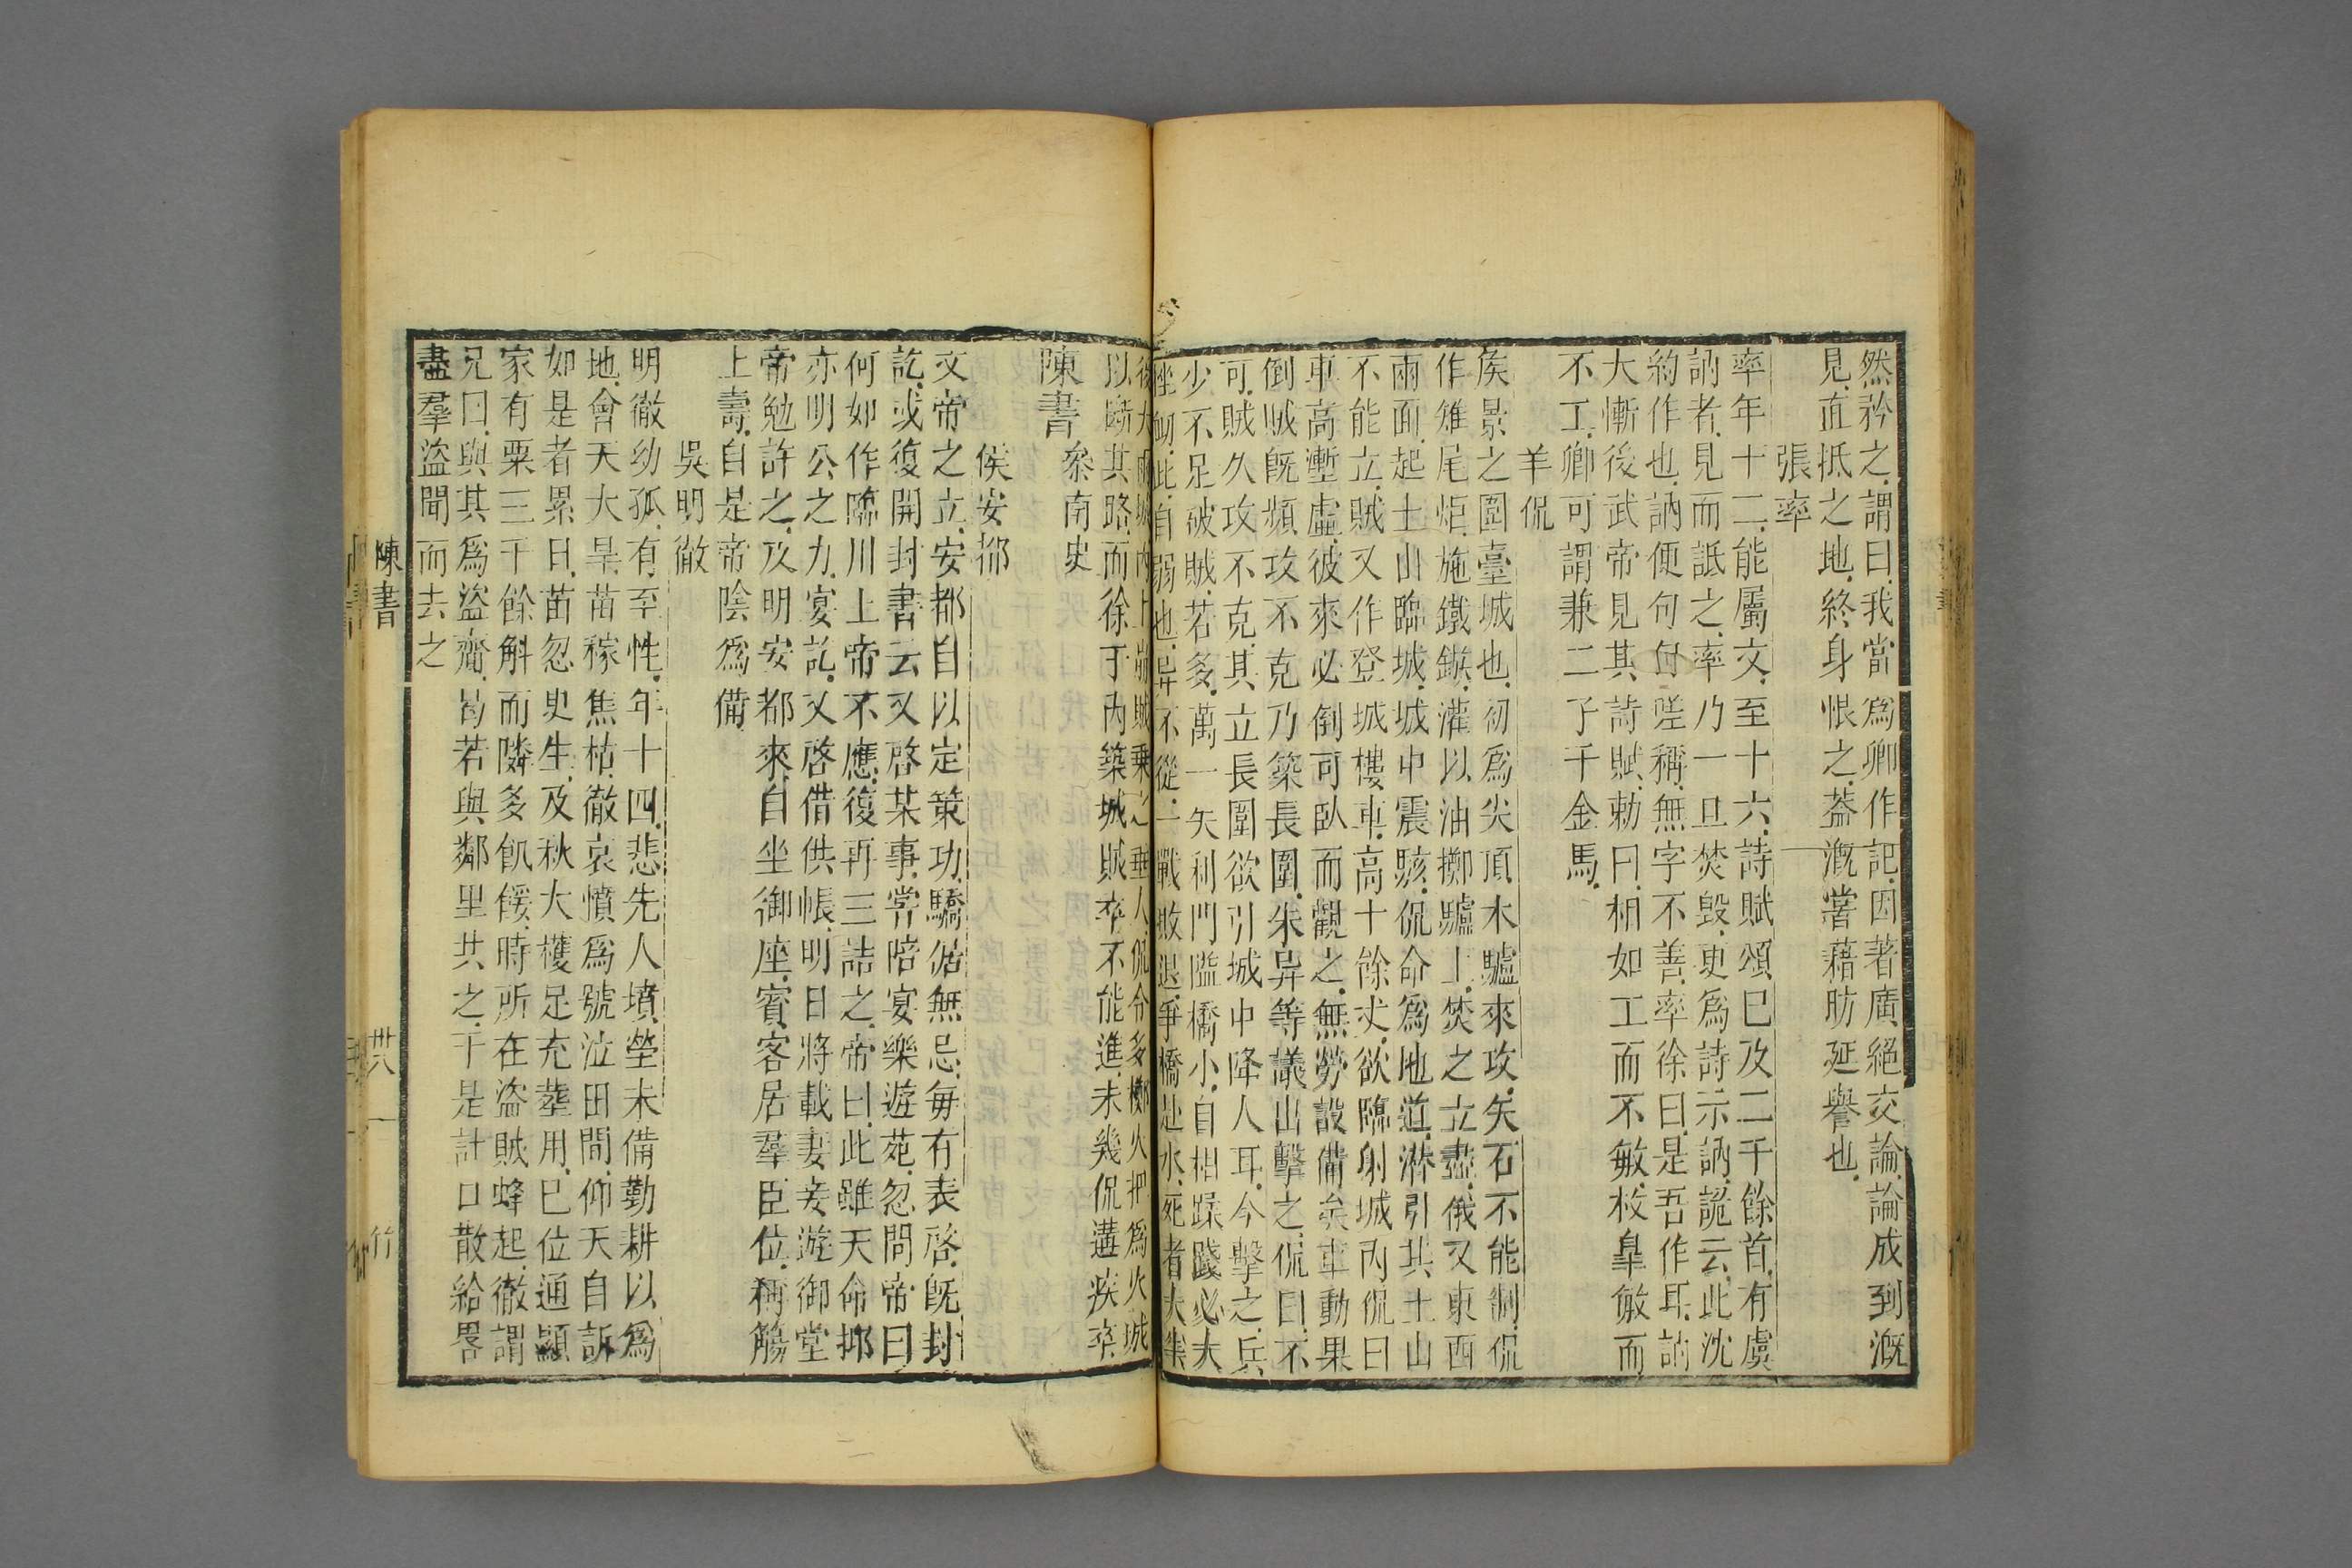 然矜之謂曰我當爲卿作記因著廣絕交論論成到漑
見直抵之地終身恨之葢漑嘗藉肪延譽也
張率
率年十二能屬文至十六詩賦頌巳及二千餘首有虞
訥者見而詆之率乃一旦焚毁更爲詩示訥詭云此沈
約作也訥便句句嗟稱無字不善率徐曰是吾作耳訥
大慚後武帝見其詩賦勅曰相如工而不敏枚臯敏而
不工卿可謂兼二子于金馬
羊侃
矦景之圍臺城也初爲尖頂木驢來攻矢石不能制侃
作雉尾炬施鐵鏃灌以油擲驢上焚之立盡俄又東西
兩面起土山臨城城中震駭侃命爲地道潛引其土山
不能立賊又作登城樓車高十餘丈欲臨射城內侃曰
車高壍虛彼來必倒可臥而觀之無勞設備矣車動果
倒賊旣頻攻不克乃築長圍朱异等議出擊之侃曰不
可賊久攻不克其立長圍欲引城中降人耳今擊之兵
少不足破賊若多萬一失利門隘橋小自相蹂踐必大
挫衂此自弱也异不從一戰敗退爭橋赴水死者大半
後大雨城內土崩賊乗之垂入侃令多擲火把爲火城
以斷其路而徐于內築城賊卒不能進未幾侃遘疾卒
陳書 叅南史
侯安都
文帝之立安都自以定策功驕倨無忌毎有表啓旣封
訖或復開封書云又啓某事嘗陪宴樂遊苑忽問帝曰
何如作臨川上帝不應復再三詰之帝曰此雖天命抑
亦明公之力宴訖又啓借供帳明日將載妻妾遊御堂
帝勉許之及明安都來自坐御座賓客居羣臣位稱觴
上壽自是帝陰爲備
吳明徹
明徹幼孤有至性年十四悲先人墳塋未備勤耕以爲
地會天大旱苗稼焦枯徹哀憤爲號泣田間仰天自訴
如是者累日苗忽更生及秋大穫足充葬用巳位通顯
家有粟三千餘斛而隣多飢餒時所在盜賊蜂起徹謂
兄曰與其爲盜齎曷若與鄰里共之于是計口散給畧
盡羣盜聞而去之
陳書 卅八 竹